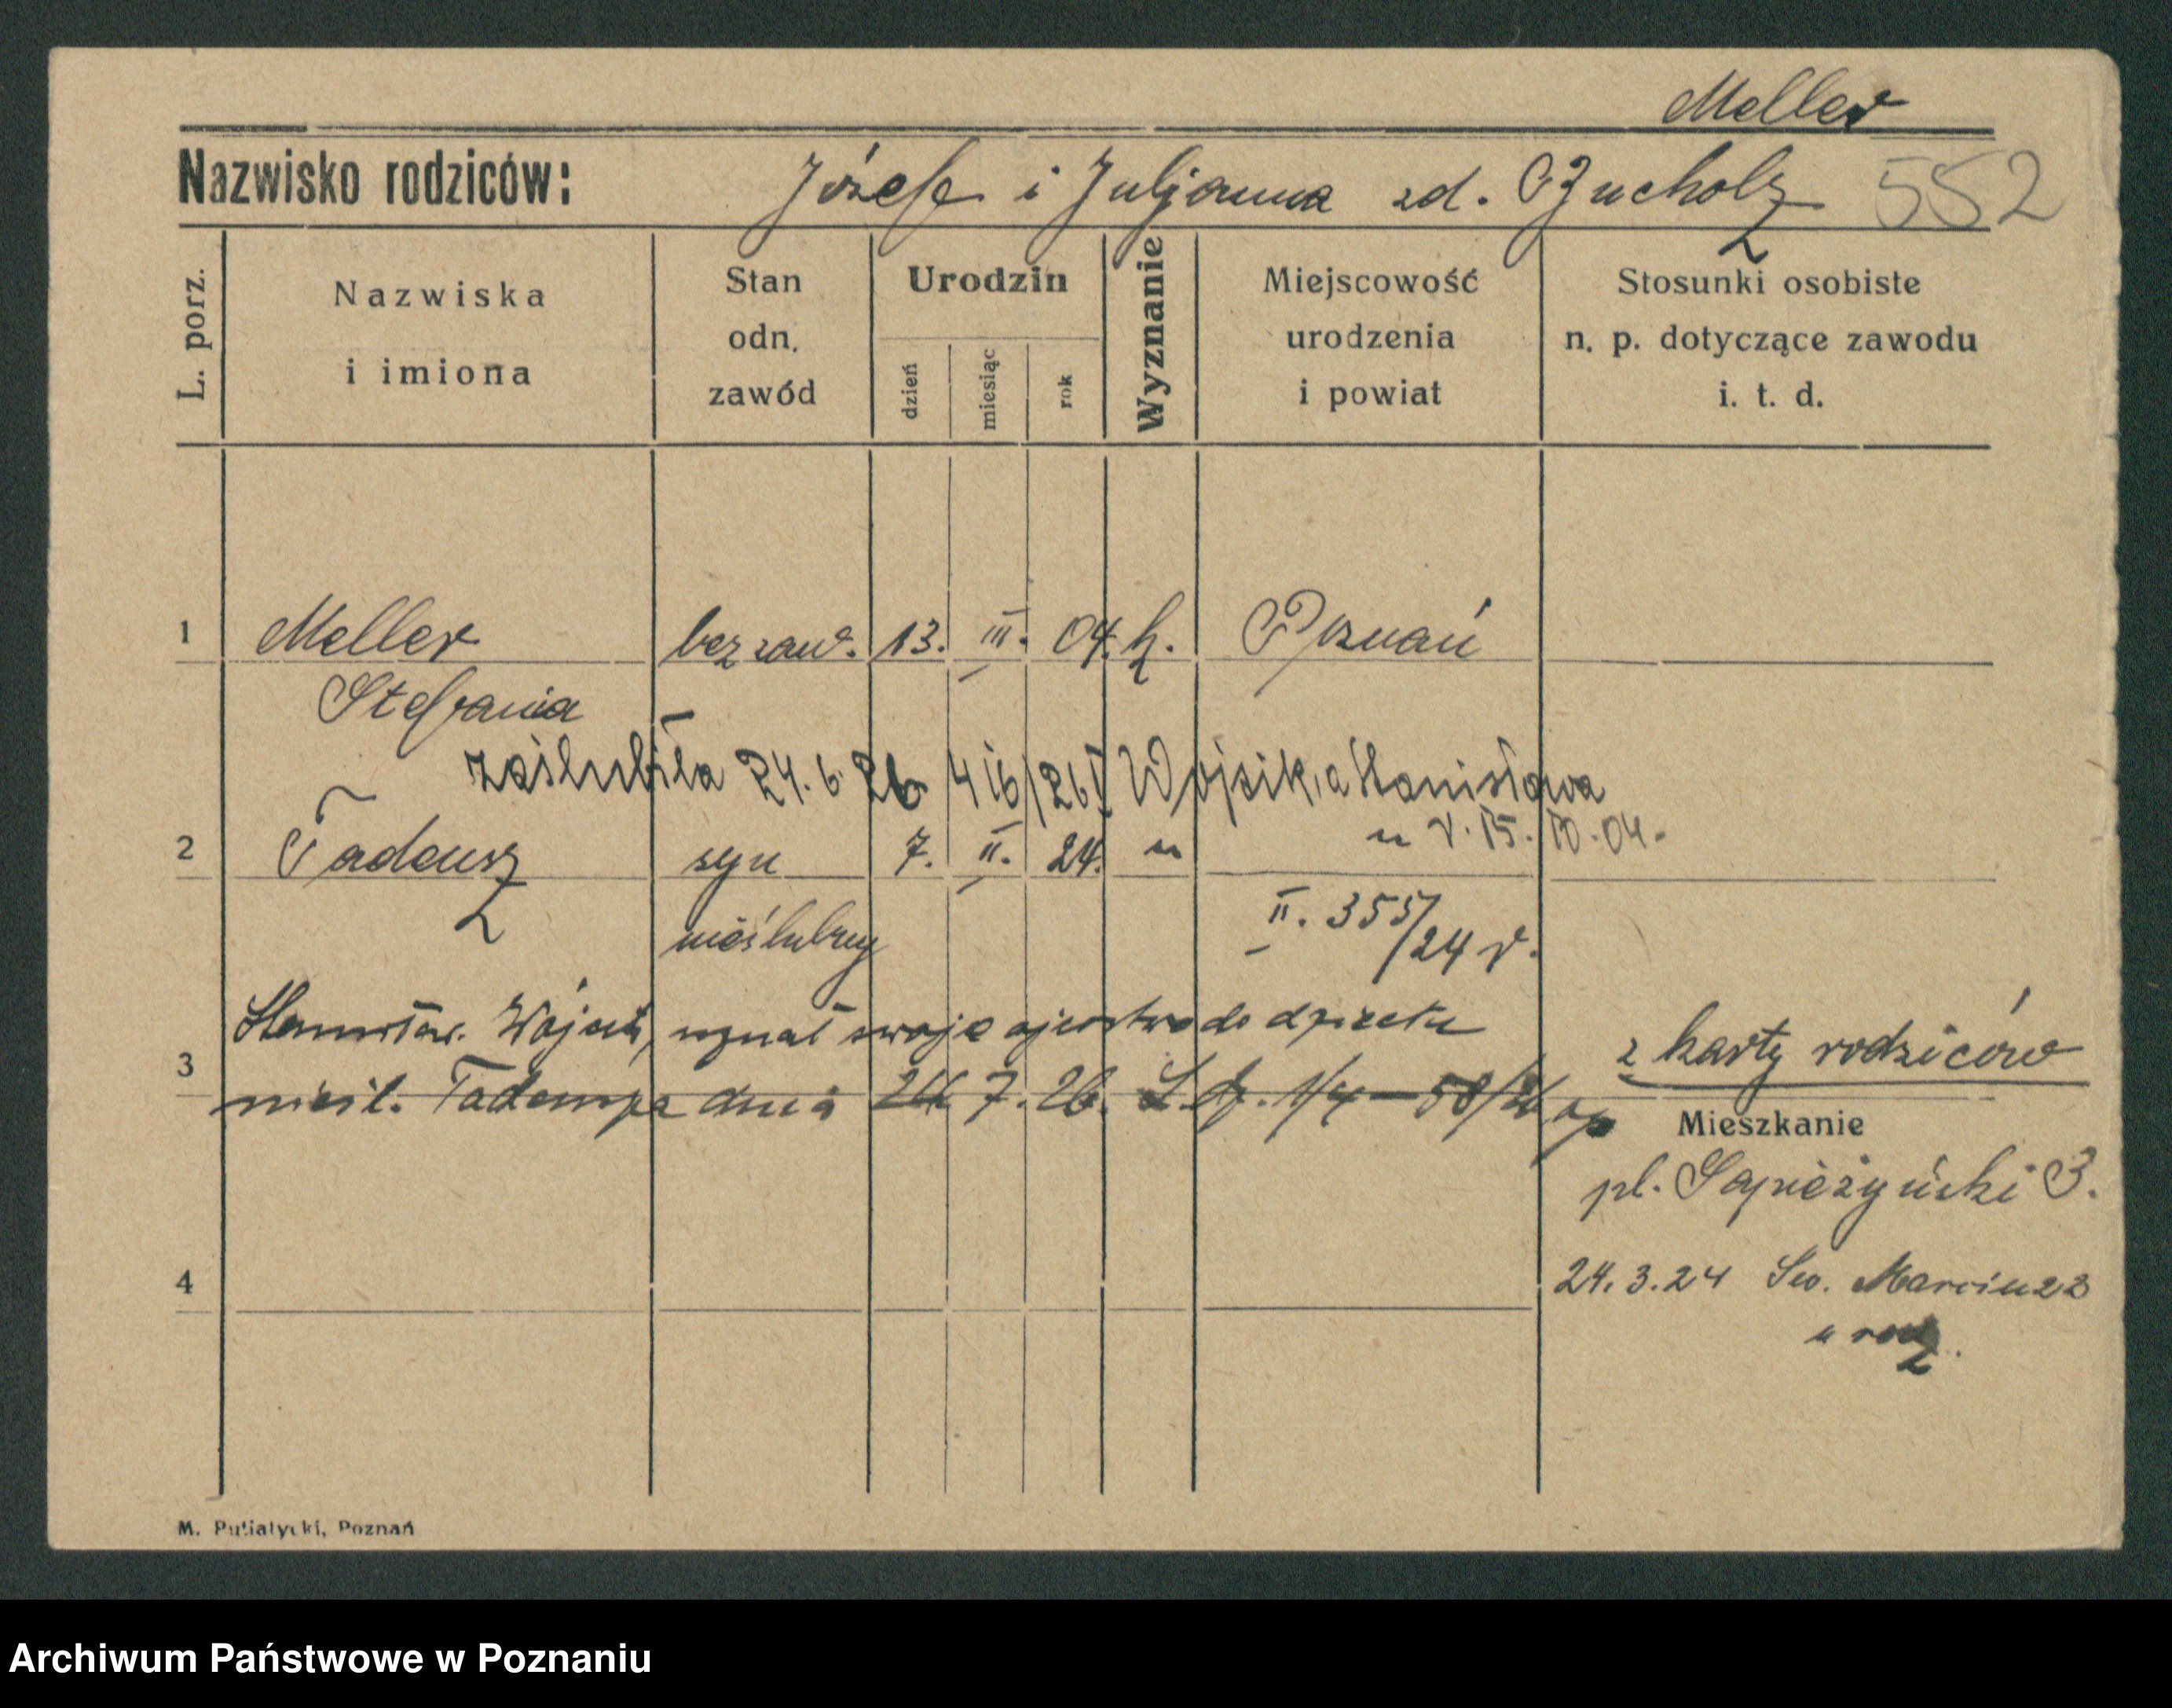 Meller
Nazwisko rodziców: Józef i Juljanna zd. Bucholz 552
L. porz.
Nazwiska i imiona
Stan odn. zawód
Urodzin
dzień miesiąc rok
Wyznanie
Miejscowość urodzenia i powiat
Stosunki osobiste n. p. dotyczące zawodu i. t. d.
1 Meller bez zaw. 13. III. 04. k. Poznań
Stefania
zaślubiła 24. 6. 26 416/26 Wojcika Stanisława
15. 04.
2 Tadeusz syn 7. II. 24. "
nieślubny
II. 355/24
Stanisław Wójcik, uznał swoje ojcostwo do dziecka
3 nieśl. Tadeusza dnia 7. 26.
z karty rodziców
Mieszkanie
pl. Sapieżyński 3.
4 24. 3. 24 Św. Marcin 22
u rodz.
M. Putiatycki, Poznań
Archiwum Państwowe w Poznaniu